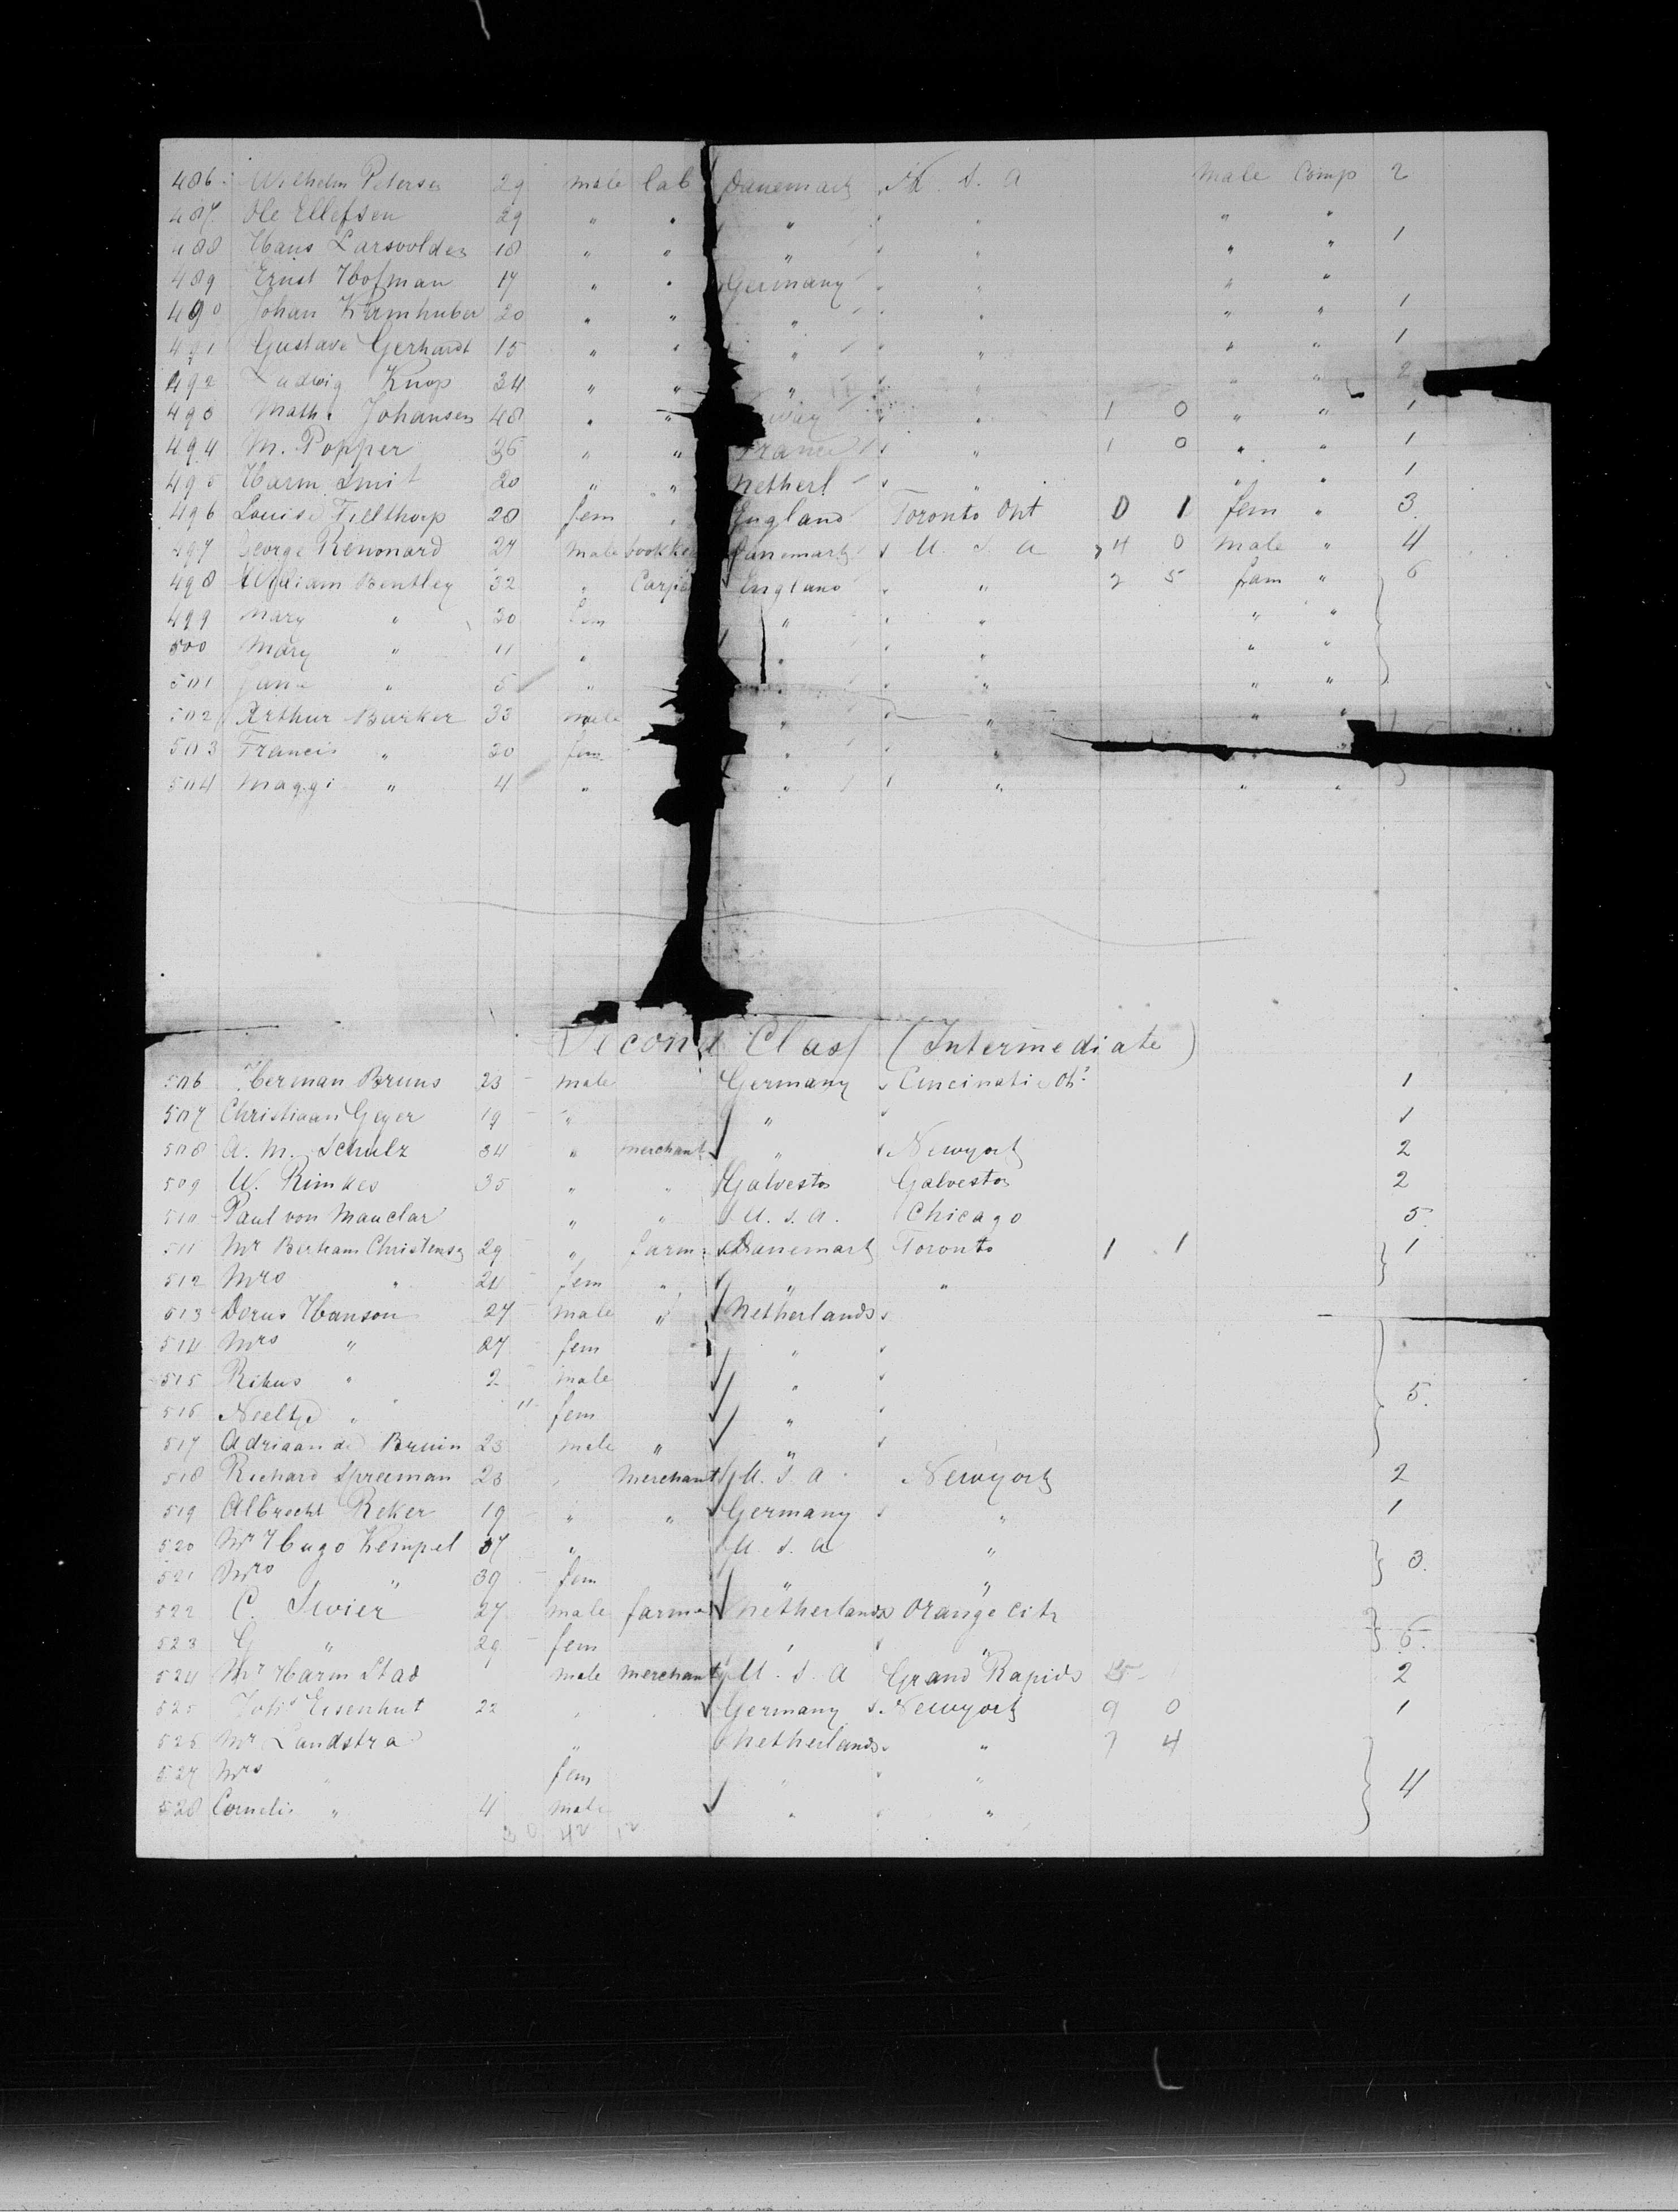 486 Wilhelm Petersen 29 male lab Danemark U. S. A male Comp 2
487 Ole Ellefsen 29 " " " " " "
488 Hans Larsvolden 18 " " " " " " 1
489 Ernst Hofman 17 " " Germany " " "
490 Johan Kirmhuber 20 " " " " " " 1
491 Gustave Gerhardt 15 " " " " " " 1
492 Ludwig Knop 34 " " " " " " 2
493 Math. Johansen 48 " " way " 1 0 " " 1
494 M. Popper 36 " " France " 1 0 " " 1
495 Harm Smit 20 " " Netherl " " " 1
496 Louise Fillthorp 28 fem " England Toronto Ont 0 1 fem " 3
497 George Renonard 27 male bookke Danemark U. S. A 4 0 male " 4
498 William Bentley 32 " Carpe England " 2 5 fam " 6
499 Mary " 30 fem " " " "
500 Mary " 11 " " " " "
501 Jane " 5 " " " "
502 Arthur Barker 33 male " " " "
503 Francis " 30 fem " "
504 Maggi " 4 " " " " "
Second Class (Intermediate)
506 Herman Bruns 23 male Germany Cincinati Oh. 1
507 Christiaan Geyer 19 " " 1
508 A. M. Schulz 34 " merchant " Newyork 2
509 W. Rimkes 35 " " Galveston Galveston 2
510 Paul von Mauclar " " U. S. A. Chicago 5
511 Mr Bertram Christensen 29 " farm Danemark Toronto 1 1 1
512 Mrs " 24 fem " " "
513 Dorus Hanson 27 male " Netherlands
514 Mrs " 27 fem "
515 Rikus " 2 male "
516 Neeltje " 11 fem " 5
517 Adriaan de Bruin 23 male " "
518 Richard Spreeman 23 " Merchant U. S. A. Newyork 2
519 Albrecht Reker 19 " " Germany " 1
520 Mr Hugo Kempel 37 " U. S. A "
521 Mrs " 39 fem " " 3
522 C. Swier 27 male farmer Netherlands Orange City
523 G " 29 fem " " 6
524 Mr Harm Stad male merchant U. S. A Grand Rapids 2
525 Johs Eisenhut 22 " " Germany Newyork 9 0 1
526 Mr Landstra " Netherlands " 7 4
527 Mrs " fem " " 4
528 Cornelis " 4 male " "
42 12